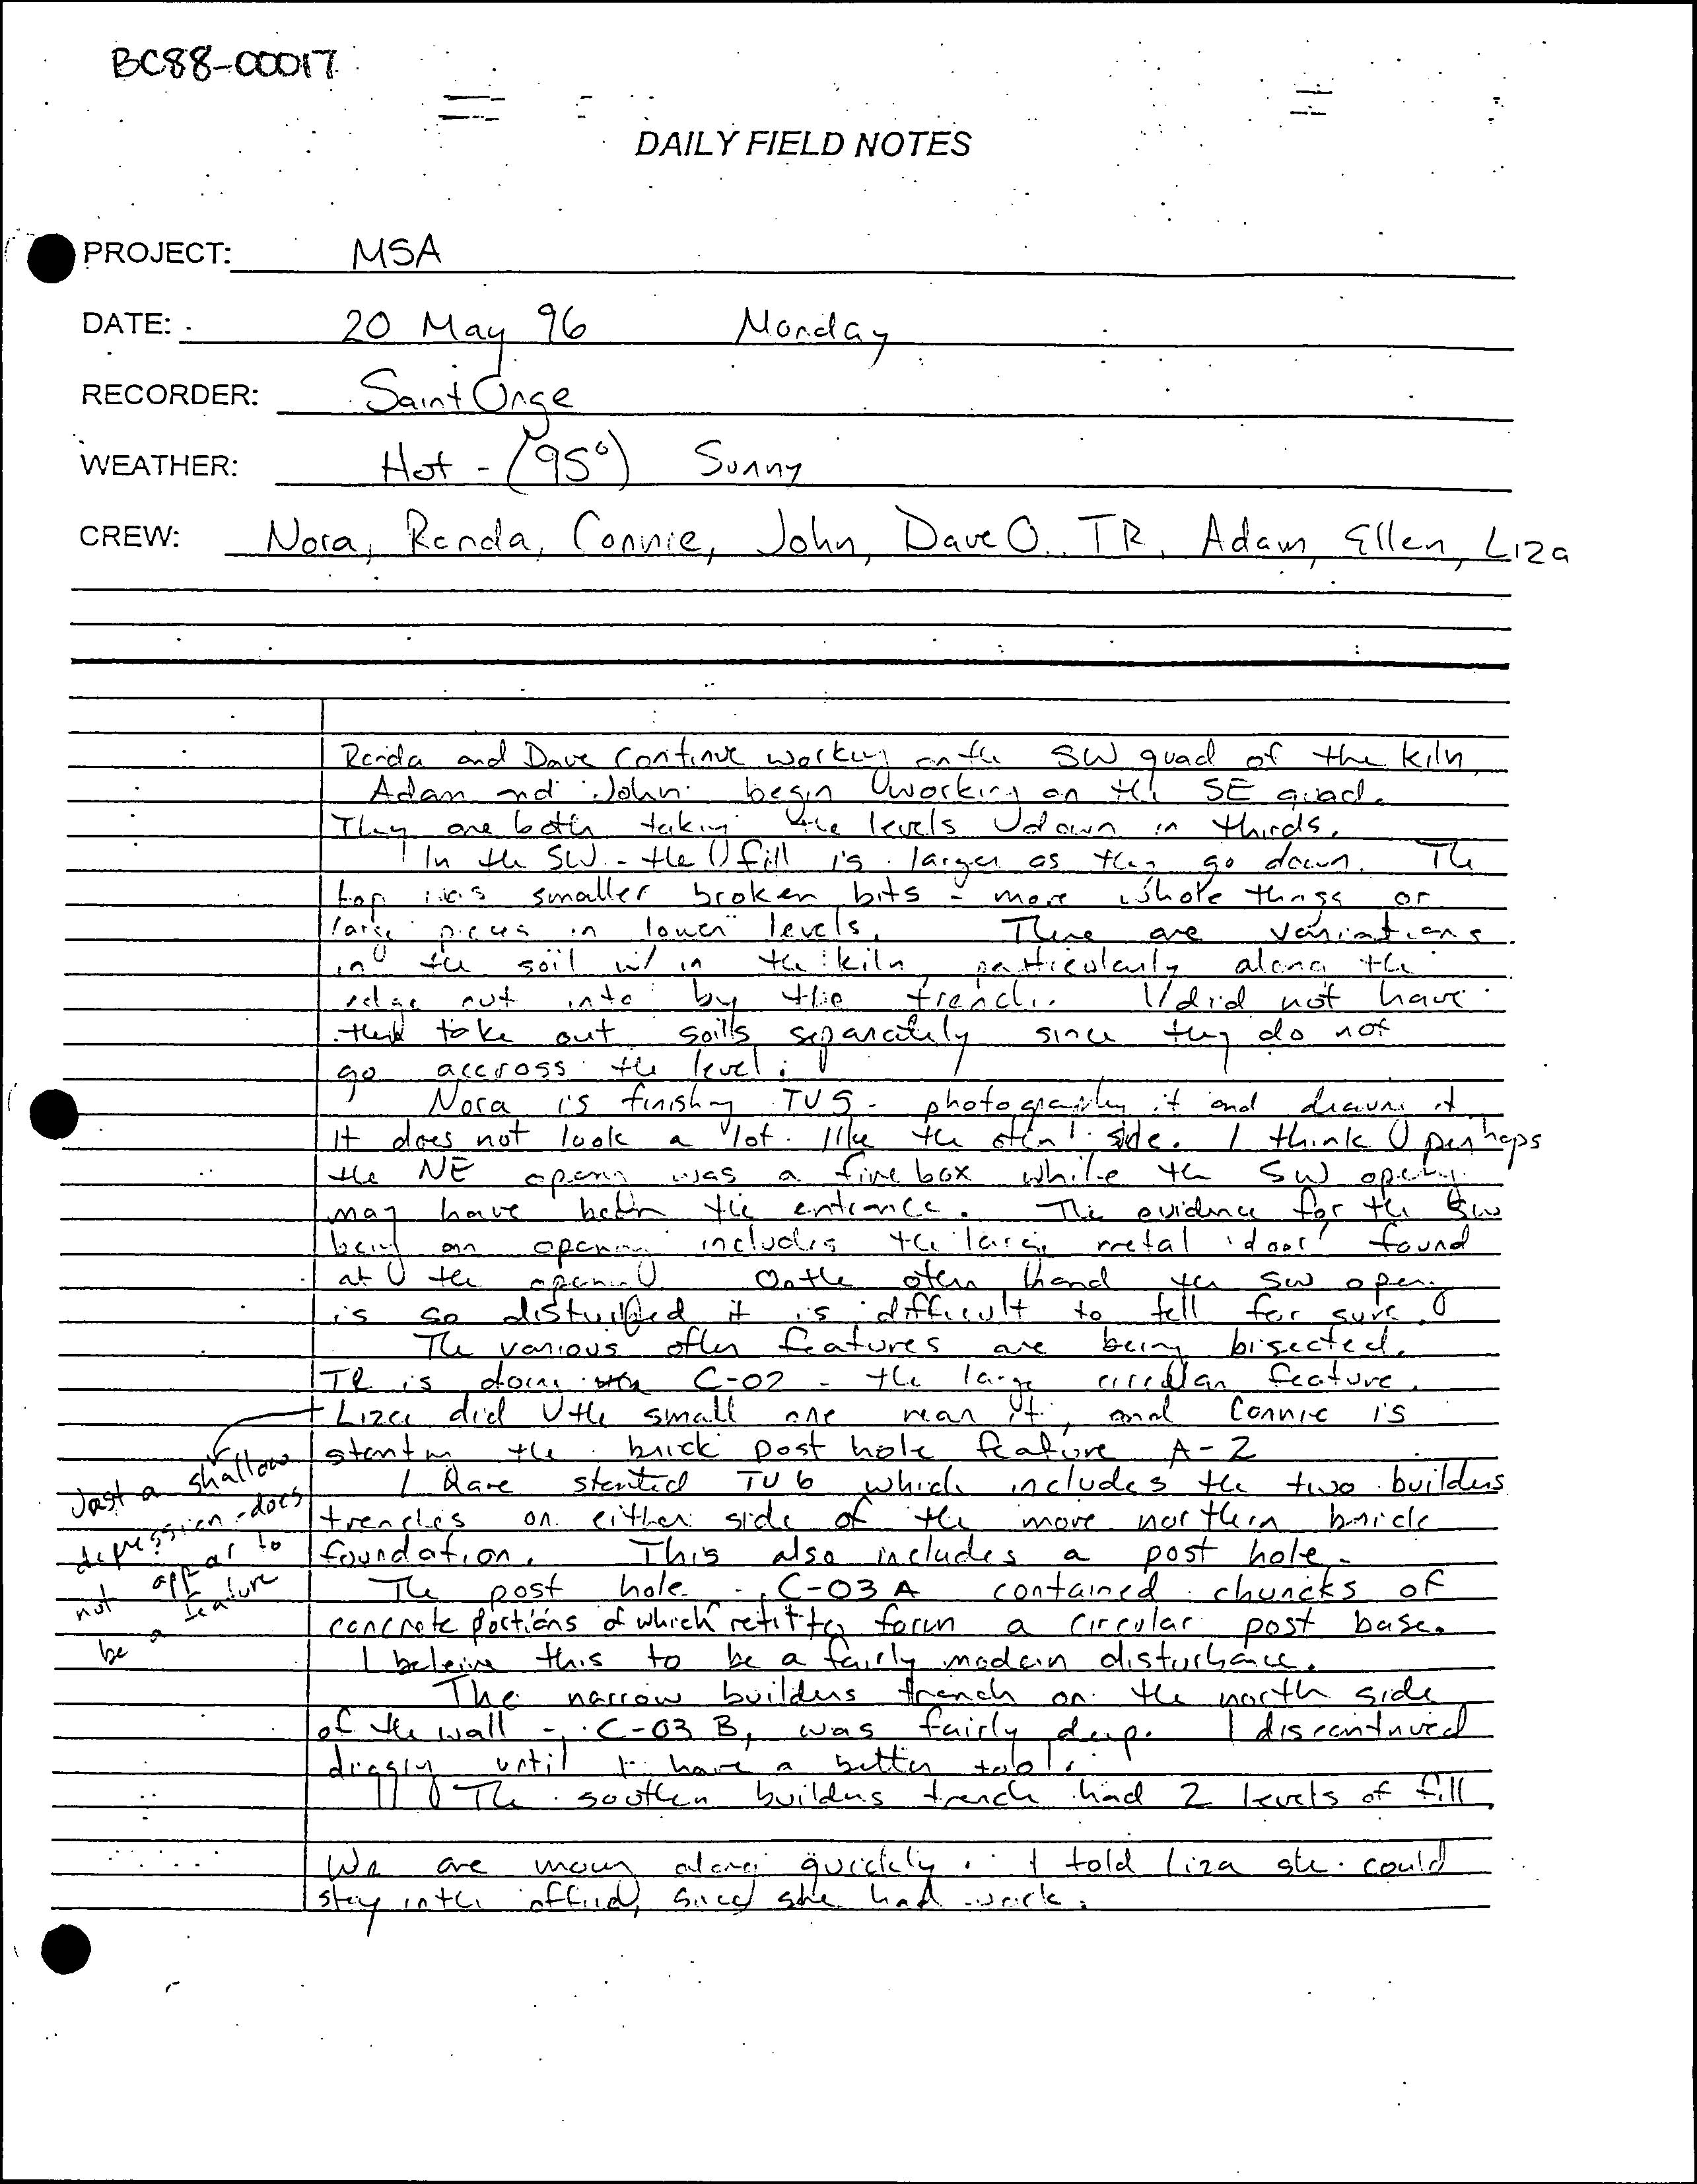 BC88-00017
DAILY FIELD NOTES
PROJECT: MSA
DATE: 20 May 96 Monday
RECORDER: Saint Onge
WEATHER: Hot - (95°) Sunny
CREW: Nora, Randa, Connie, John, Dave O. TR, Adam, Ellen, Liza
Randa and Dave continue working on the SW quad of the kiln
Adam and John begin working on the SE quad.
They are both taking the levels down in thirds.
In the SW - the fill is larger as they go down. The
top was smaller broken bits - more whole things or
large pieces in lower levels. There are variations
in the soil w/in the kiln, particularly along the
edge cut into by the trench. I did not have
them take out soils separately since they do not
go accross the level.
Nora is finishing TU5 - photographing it and drawing it
It does not look a lot like the other side. I think perhaps
the NE opening was a fire box while the SW opening
may have been the entrance. The evidence for the SW
being an opening includes the large metal "door" found
at the opening. On the other hand the SW opening
is so disturbed it is difficult to tell for sure.
The various other features are being bisected.
TR is doing C-02 - the large circular feature.
Liza did the small one near it, and Connie is
starting the brick post hole feature A-2
Just a shallow
depression - does
not appear to
be a feature
I have started TU6 which includes the two builders
trenches on either side of the more northern brick
foundation. This also includes a post hole.
The post hole - C-03A contained chuncks of
concrete portions of which refit to form a circular post base.
I beleive this to be a fairly modern disturbance.
The narrow builders trench on the north side
of the wall - C-03B, was fairly deep. I discontinued
digging until I have a better tool.
The southern builders trench had 2 levels of fill.
We are moving along quickly. I told Liza she could
stay in the office, since she had work.